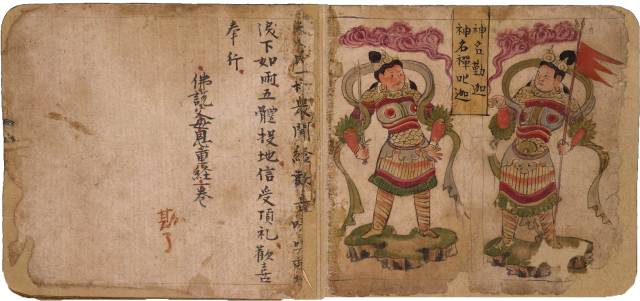 神名勤迦
神名禪叱迦
人民一切衆聞經歡喜
淚下如雨五體投地信受頂礼歡喜
奉行
佛說父母恩重經一卷
勘了